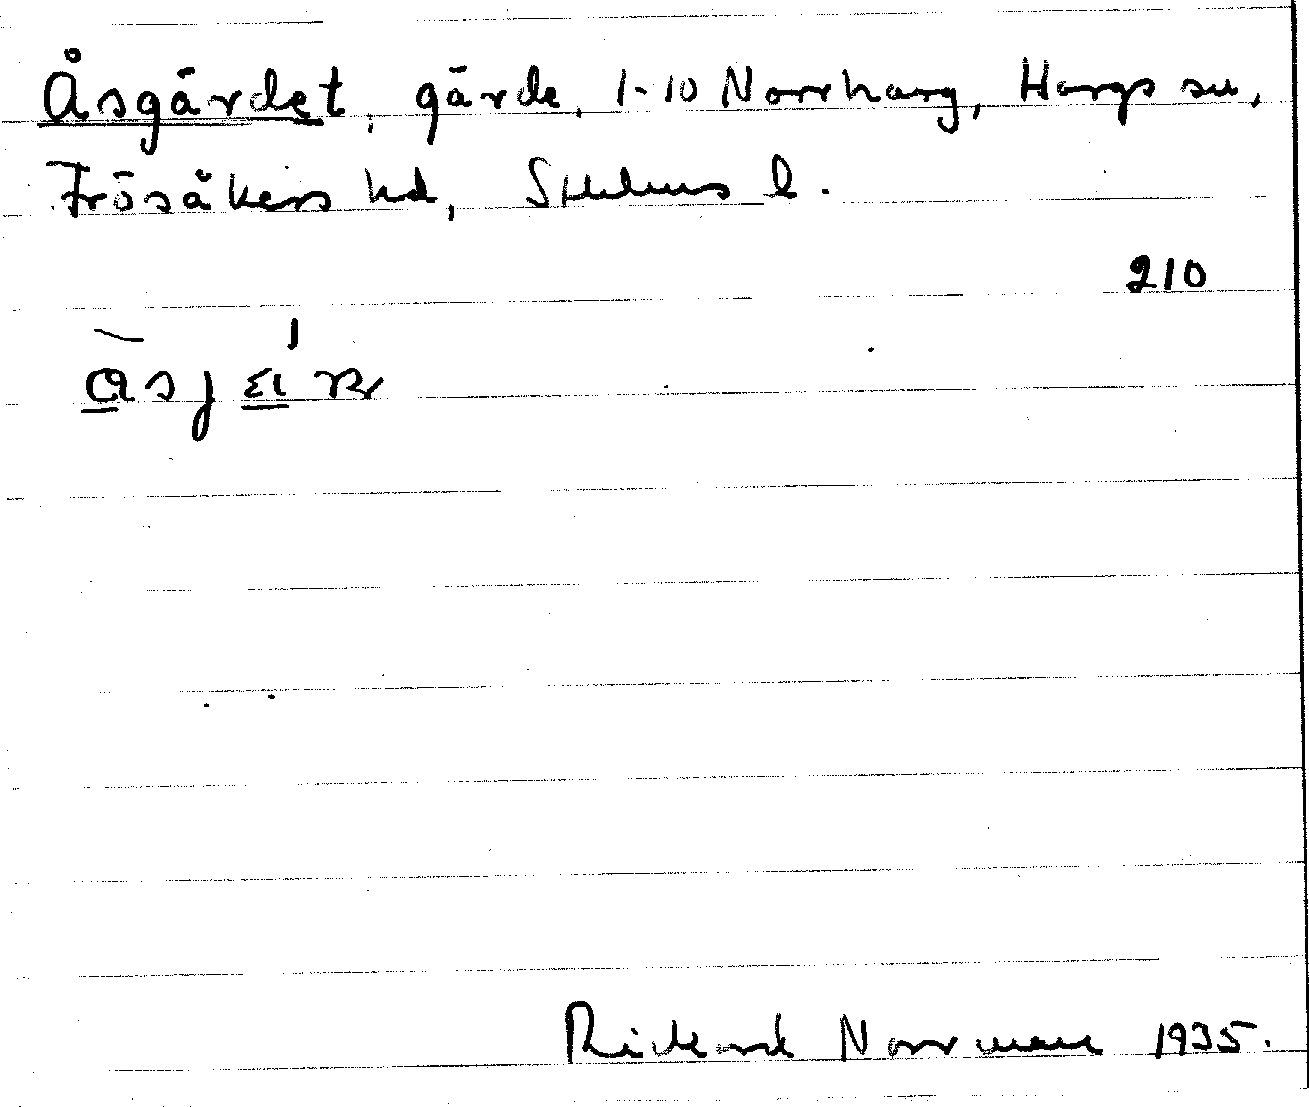 Åsgärdet, gärde, 1-10 Norrharg, Hargs sn,
Frösåkers hd, Sthlms l.
210
Rickard Norrman 1935.